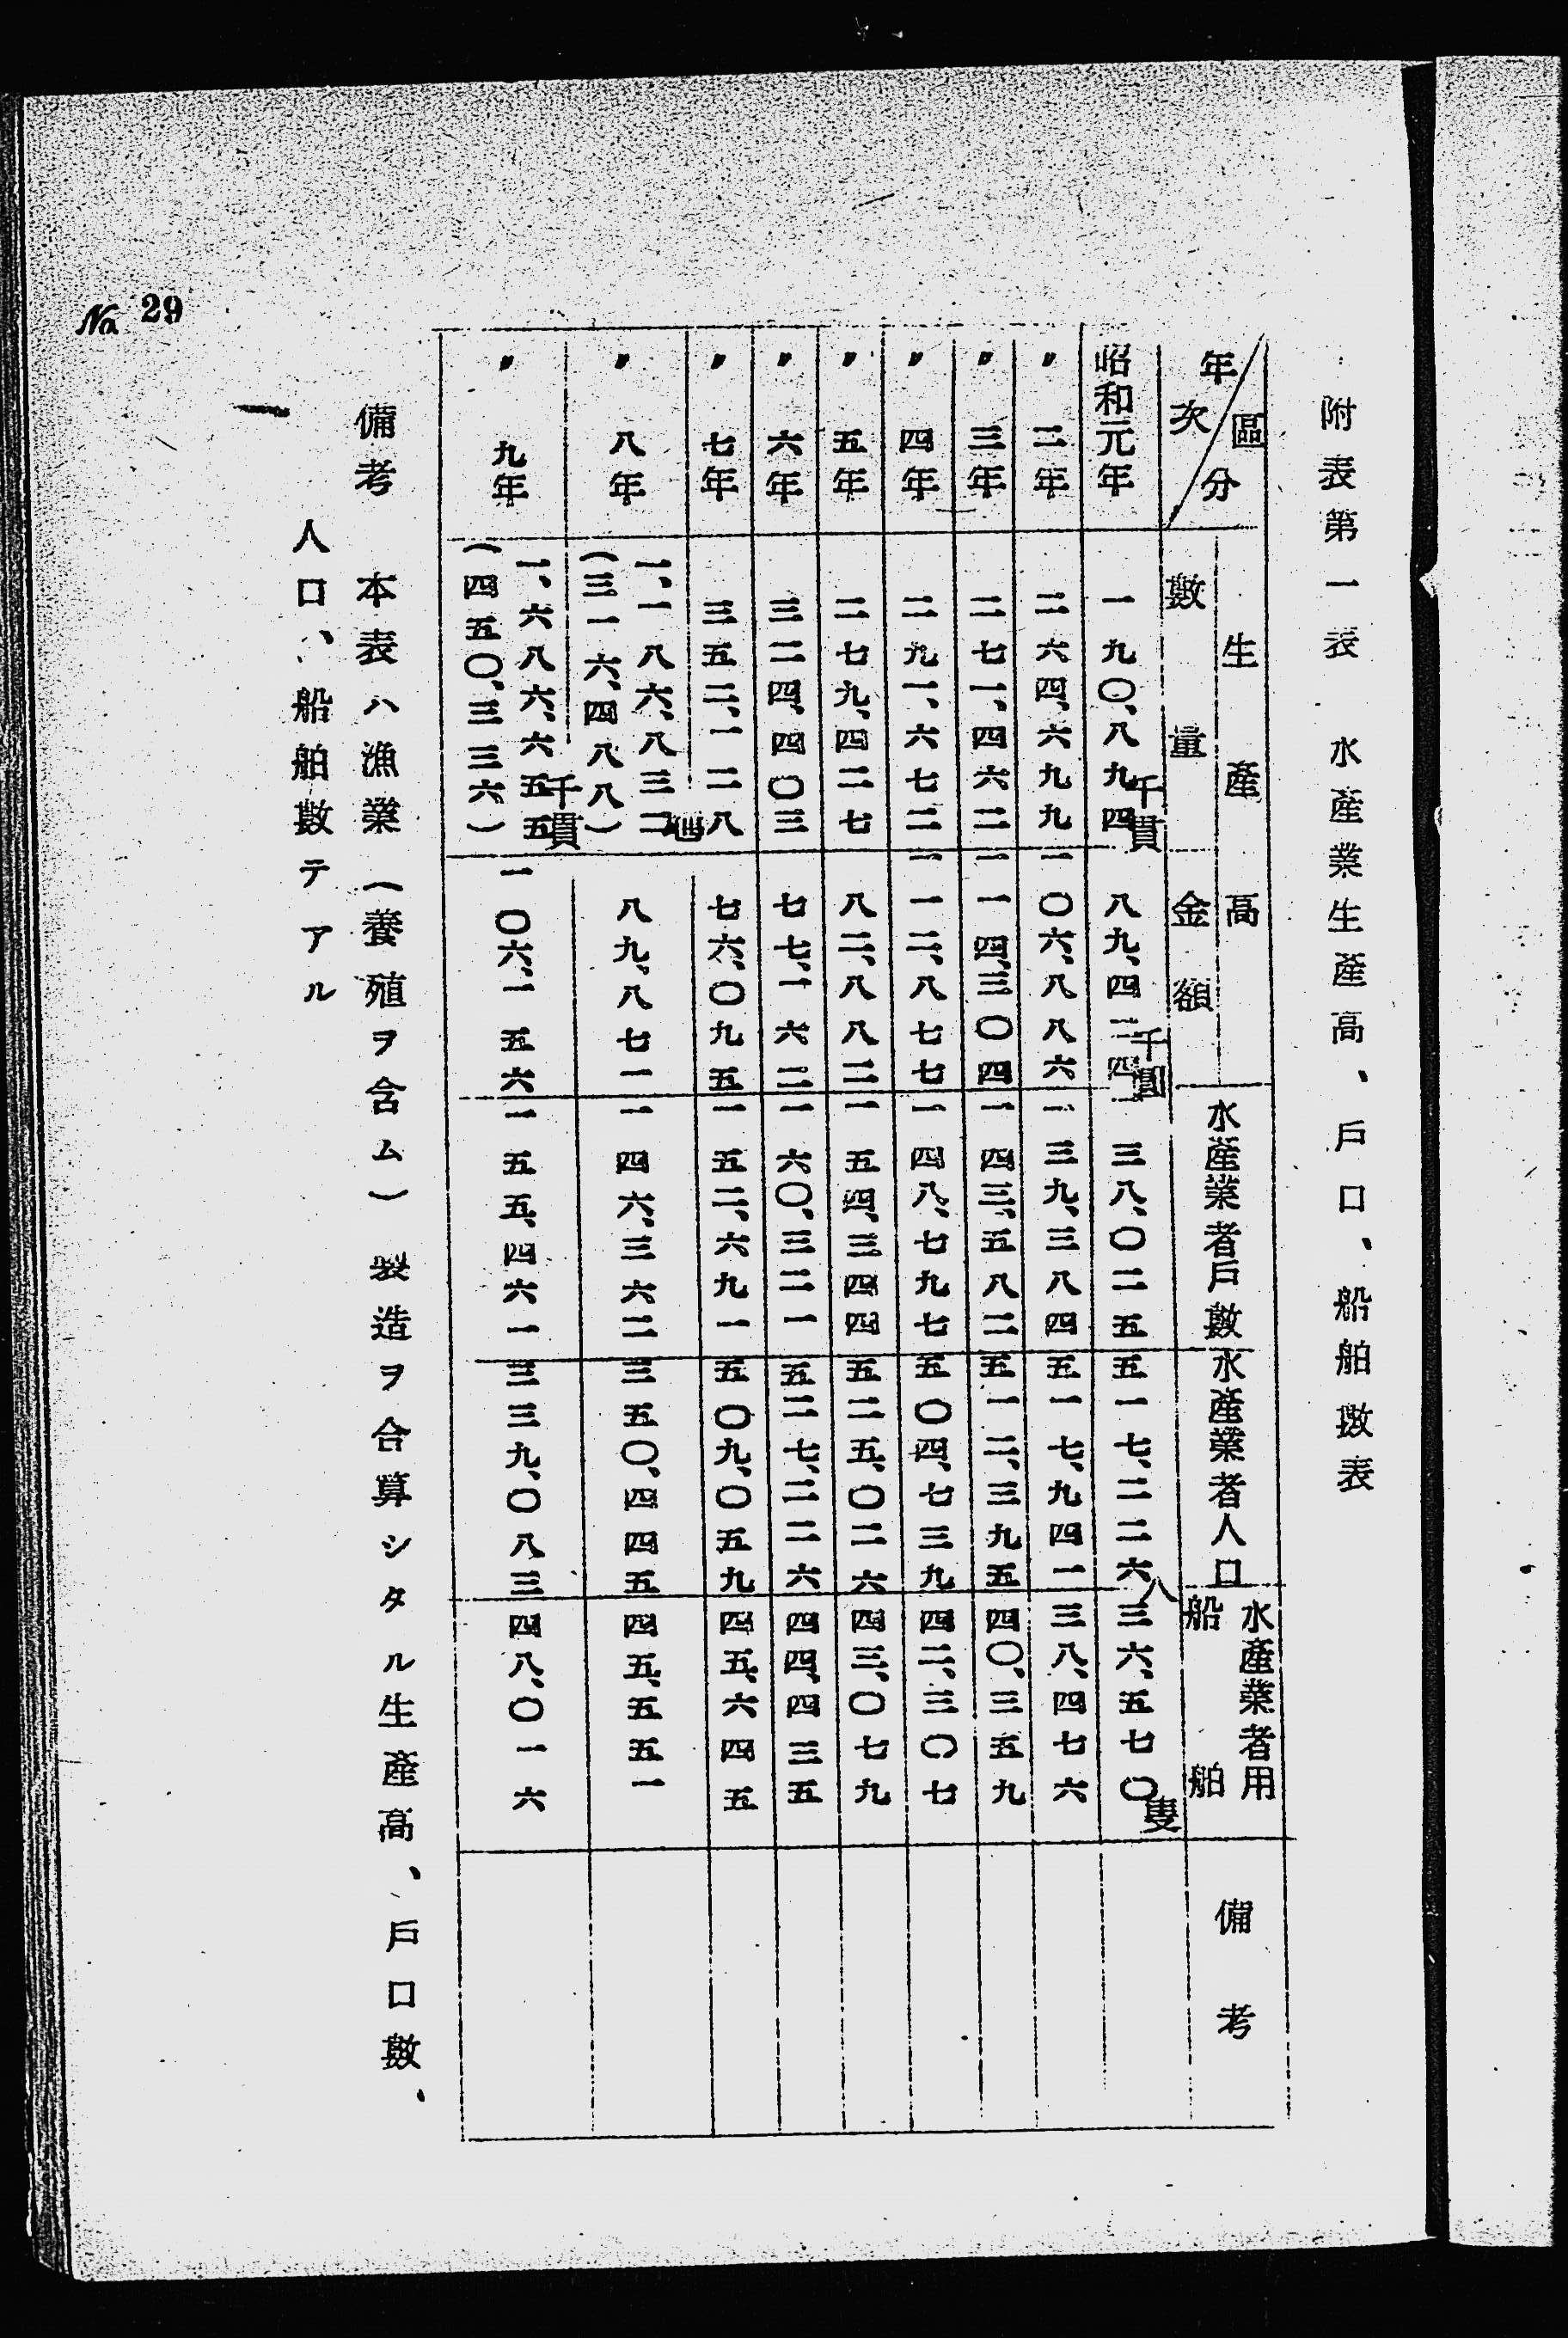 附表第一表 水產業生產高、戶口、船舶數表
區分
年次
生產高
數量
金額
水產業者戶數
水產業者人口
水產業者用
船舶
備考
昭和元年 一九〇、八九四千貫 八九、四二四千圓 一三八、〇二五 五一七、二二六人 三六、五七〇隻
〃二年 二六四、六九九 一〇六、八八六 一三九、三八四 五一七、九四一 三八、四七六
〃三年 二七一、四六二 一一四、三〇四 一四三、五八二 五一二、三九五 四〇、三五九
〃四年 二九一、六七二 一一二、八七七 一四八、七九七 五〇四、七三九 四二、三〇七
〃五年 二七九、四二七 八二、八八二 一五四、三四四 五二五、〇二六 四三、〇七九
〃六年 三二四、四〇三 七七、一六二 一六〇、三二一 五二七、二二六 四四、四三五
〃七年 三五二、一二八 七六、〇九五 一五二、六九一 五〇九、〇五九 四五、六四五
〃八年 一、一八六、八三二瓲 (三一六、四八八) 八九、八七一 一四六、三六二 三五〇、四四五 四五、五五一
〃九年 一、六八六、六五五 (四五〇、三三六)千貫 一〇六、一五六 一五五、四六一 三三九、〇八三 四八、〇一六
備考 本表ハ漁業(養殖ヲ含ム)製造ヲ合算シタル生產高、戶口數、
人口、船舶數テアル
No 29